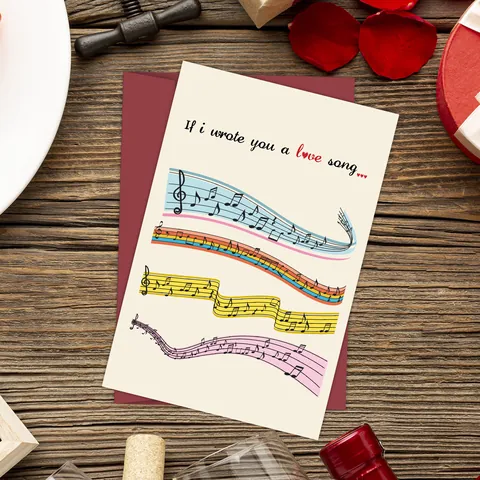 If i wrote you a love song...